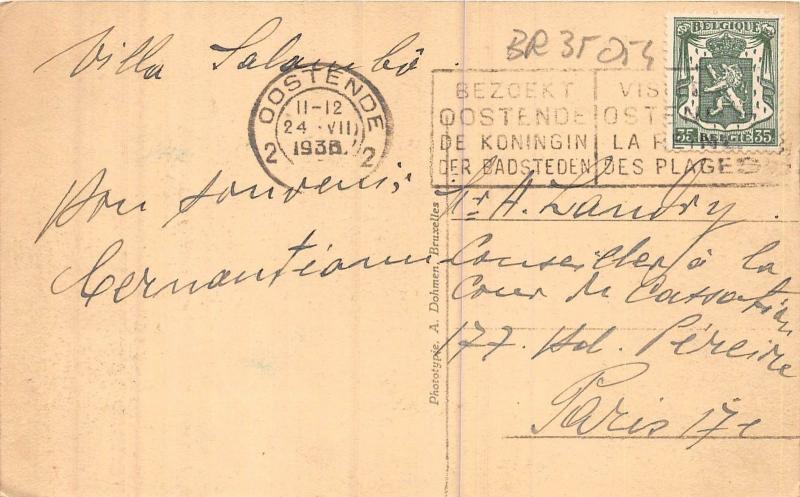 Villa Salambô
BR 35 054
BELGIQUE
35 BELGIË 35
OOSTENDE
11-12
24 VII
193
2 2
BEZOEKT
OOSTENDE
DE KONINGIN
DER BADSTEDEN
VIS
OST
LA R
DES PLAGES
Bon souvenir
Mr A. Landry
Conseiller à la
Cour de Cassation
177. Bd. Péreire
Paris 17e
Phototypie. A. Dohmen, Bruxelles